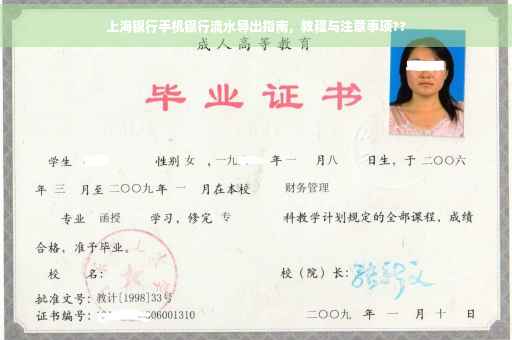 上海银行手机银行流水导出指南，教程与注意事项??
成人高等教育
毕业证书
学生 性别 女 ，一九 年 一 月 八 日生，于 二〇〇六
年 三 月至 二〇〇九 年 一 月在本校 财务管理
专业 函授 学习，修完 专 科教学计划规定的全部课程，成绩
合格，准予毕业。
校 名： 校（院）长：
批准文号：教计[1998]33号
证书编号： 06001310 二〇〇九 年 一 月 十 日